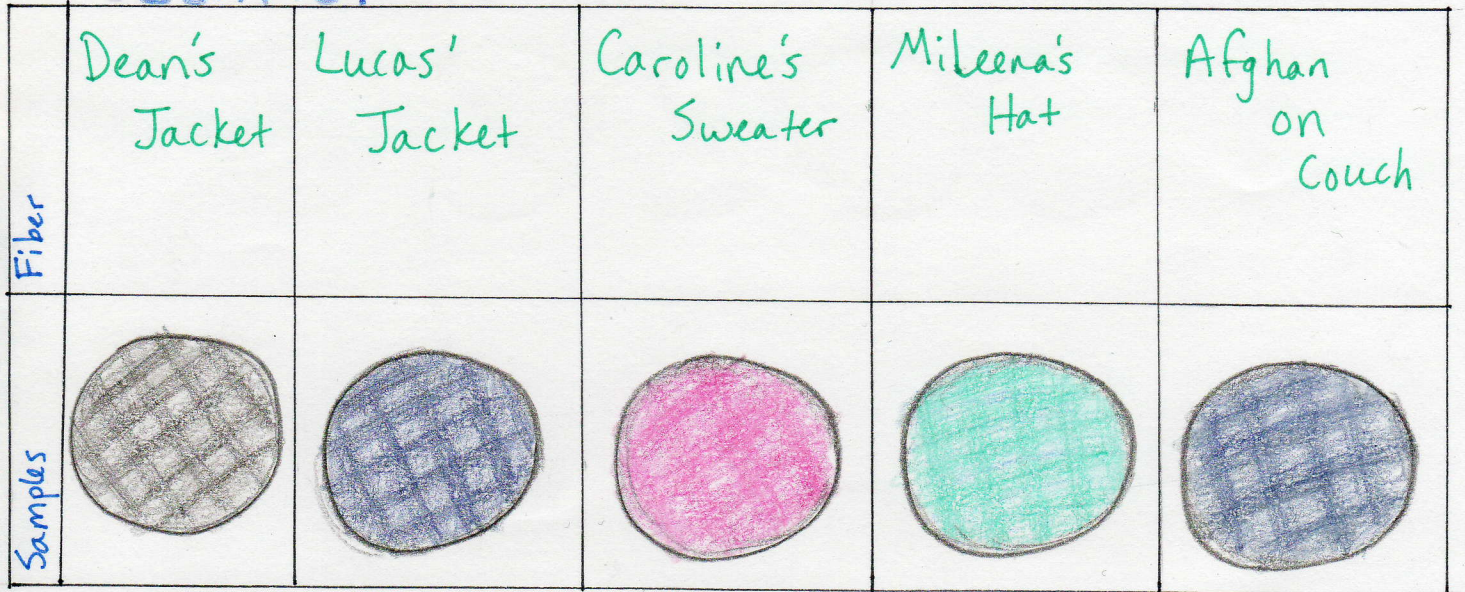 Fiber
Dean's
Jacket
Lucas'
Jacket
Caroline's
Sweater
Mileena's
Hat
Afghan
on
Couch
Samples